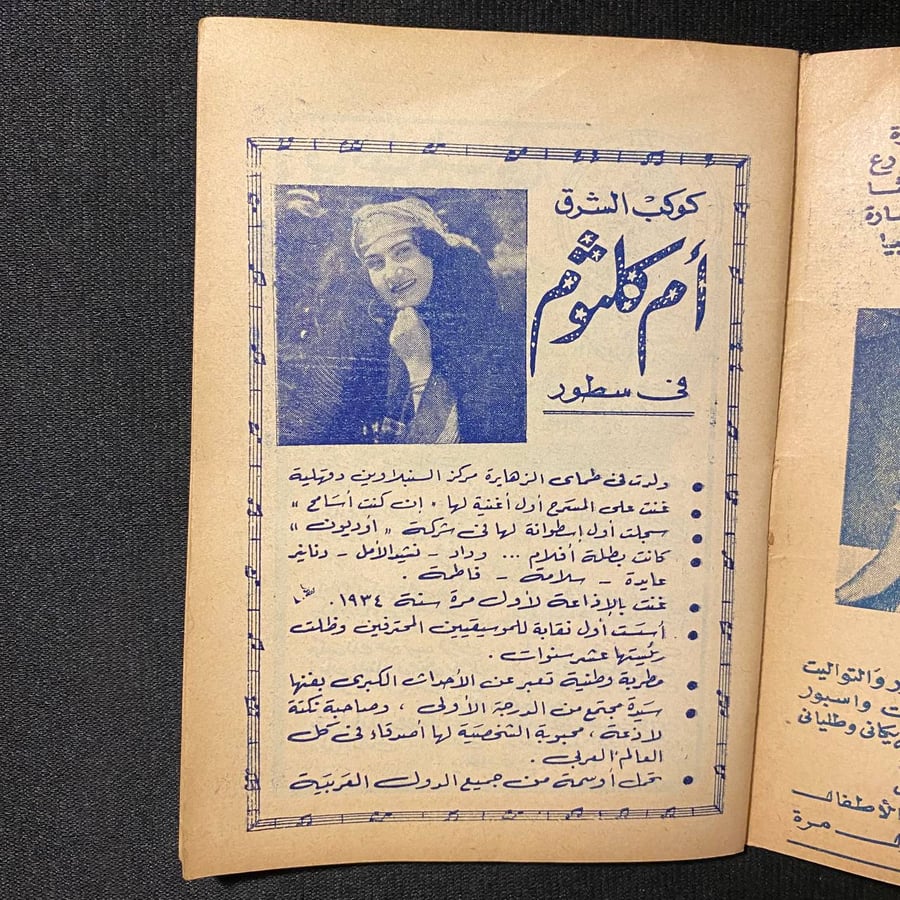 كوكب الشرق
أم كلثوم
فى سطور
ولدت فى طماى الزهايرة مركز السنبلاوين دقهلية
غنت على المسرح أول أغنية لها " إن كنت أسامح "
سجلت أول إسطوانة لها فى شركة " أوديون "
كانت بطلة أفلام ... وداد - نشيد الأمل - دنانير
عايدة - سلامة - فاطمة .
غنت بالإذاعة لأول مرة سنة ١٩٣٤ .
أسست أول نقابة للموسيقيين المحترفين وظلت
رئيستها عشر سنوات .
مطربة وطنية تعبر عن الأحداث الكبرى بفنها
سيدة مجتمع من الدرجة الأولى ، وصاحبة نكتة
لاذعة ، محبوبة الشخصية لها أصدقاء فى كل
العالم العربى .
تحمل أوسمة من جميع الدول العربية
ر والتواليت
ت واسبور
يكانى وطليانى
الأطفال
مرة